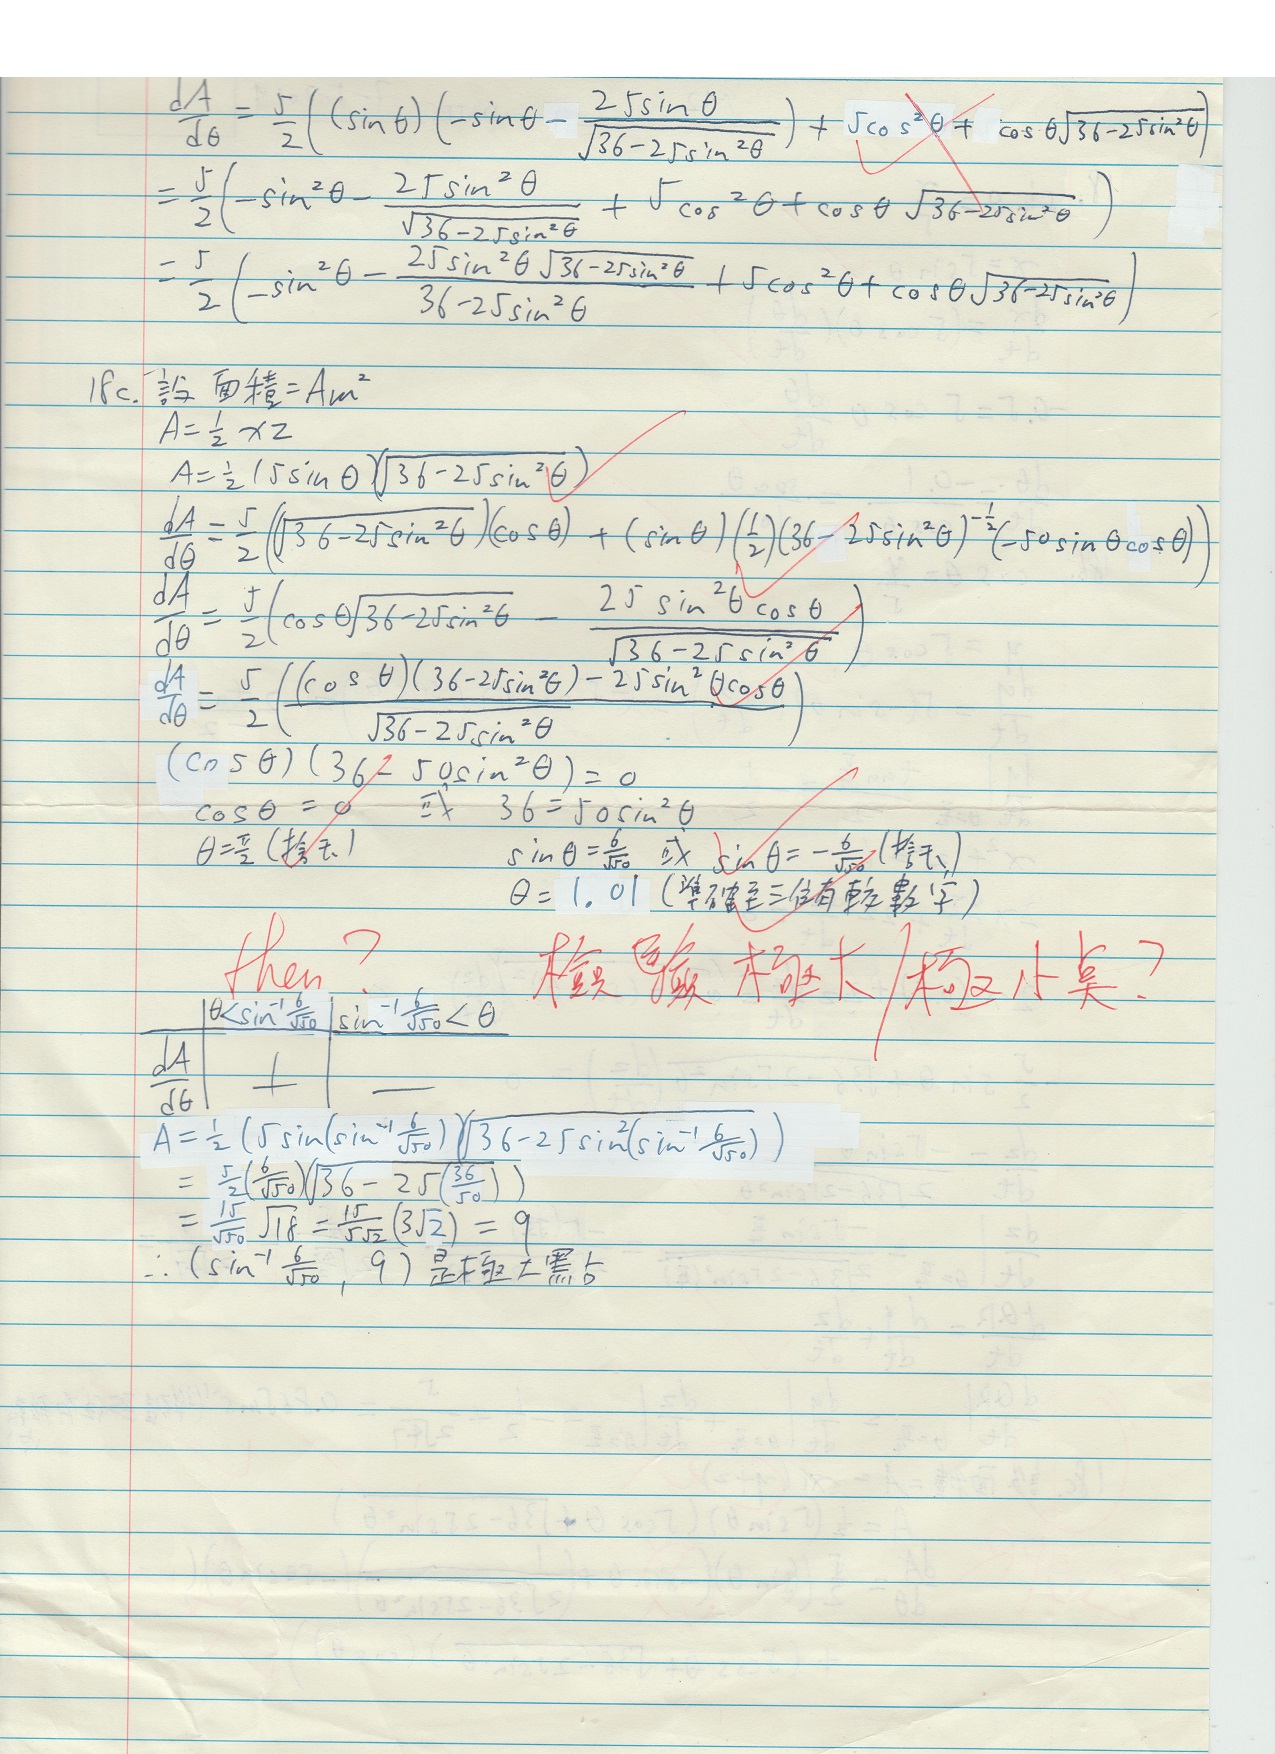 dA/dθ = 5/2 ((sin θ) (-sin θ - 25 sin θ/√(36-25 sin²θ)) + 5cos²θ + cos θ √(36-25 sin²θ))
= 5/2 (-sin²θ - 25 sin²θ/√(36-25 sin²θ) + 5cos²θ + cos θ √(36-25 sin²θ))
= 5/2 (-sin²θ - 25 sin²θ √(36-25 sin²θ)/(36-25 sin²θ) + 5cos²θ + cos θ √(36-25 sin²θ))
18c. 設面積=Am²
A=½ x z
A=½ (5 sin θ)(√(36-25 sin²θ))
dA/dθ = 5/2 ((√(36-25 sin²θ))(cos θ) + (sin θ)(½)(36-25 sin²θ)^(-½)(-50 sin θ cos θ))
dA/dθ = 5/2 (cos θ √(36-25 sin²θ) - 25 sin²θ cos θ/√(36-25 sin²θ))
dA/dθ = 5/2 (((cos θ)(36-25 sin²θ) - 25 sin²θ cos θ)/√(36-25 sin²θ))
(cos θ)(36-50 sin²θ) = 0
cos θ = 0 或 36 = 50 sin²θ
θ = π/2 (捨去) sin θ = 6/√50 或 sin θ = -6/√50 (捨去)
θ = 1.01 (準確至三位有效數字)
then? 檢驗極大/極小點?
θ<sin⁻¹ 6/√50 sin⁻¹ 6/√50 < θ
dA/dθ + —
A = ½ (5 sin(sin⁻¹ 6/√50))(√(36-25 sin²(sin⁻¹ 6/√50)))
= 5/2 (6/√50)(√(36-25(36/50)))
= 15/√50 √18 = 15/5√2 (3√2) = 9
∴ (sin⁻¹ 6/√50, 9) 是極大點